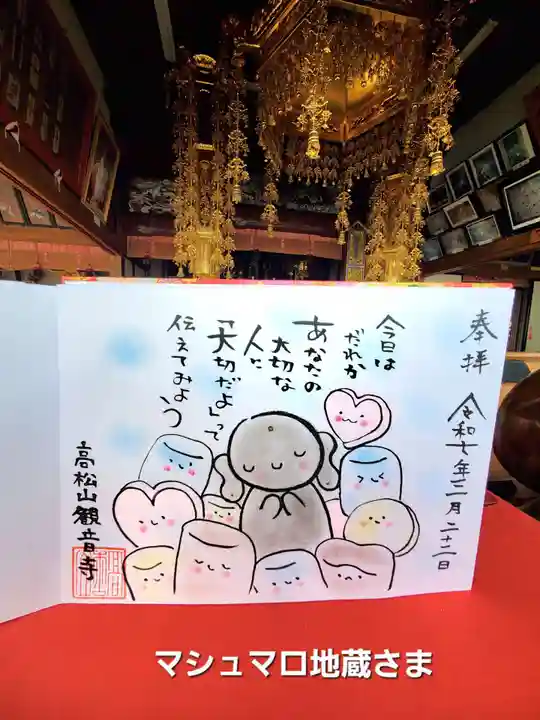 奉拝
令和七年三月二十二日
今日は
だれか
あなたの
大切な
人に
「大切だよ」って
伝えてみよう
高松山観音寺
マシュマロ地蔵さま